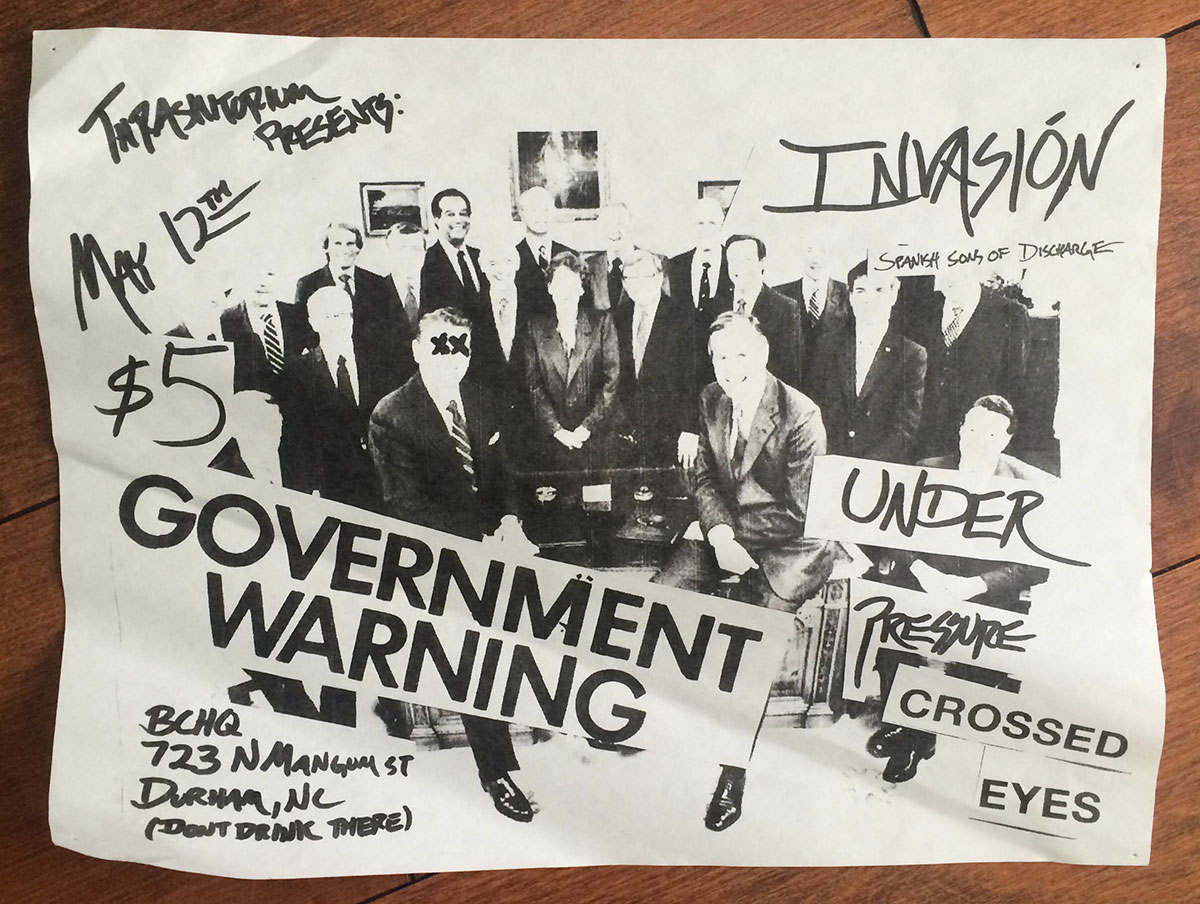 THRASHITORIUM
PRESENTS:
MAY 12TH
$5
INVASIÓN
SPANISH SONS OF DISCHARGE
XX
GOVERNMENT
WARNING
UNDER
PRESSURE
CROSSED
EYES
BCHQ
723 N MANGUM ST
DURHAM, NC
(DONT DRINK THERE)